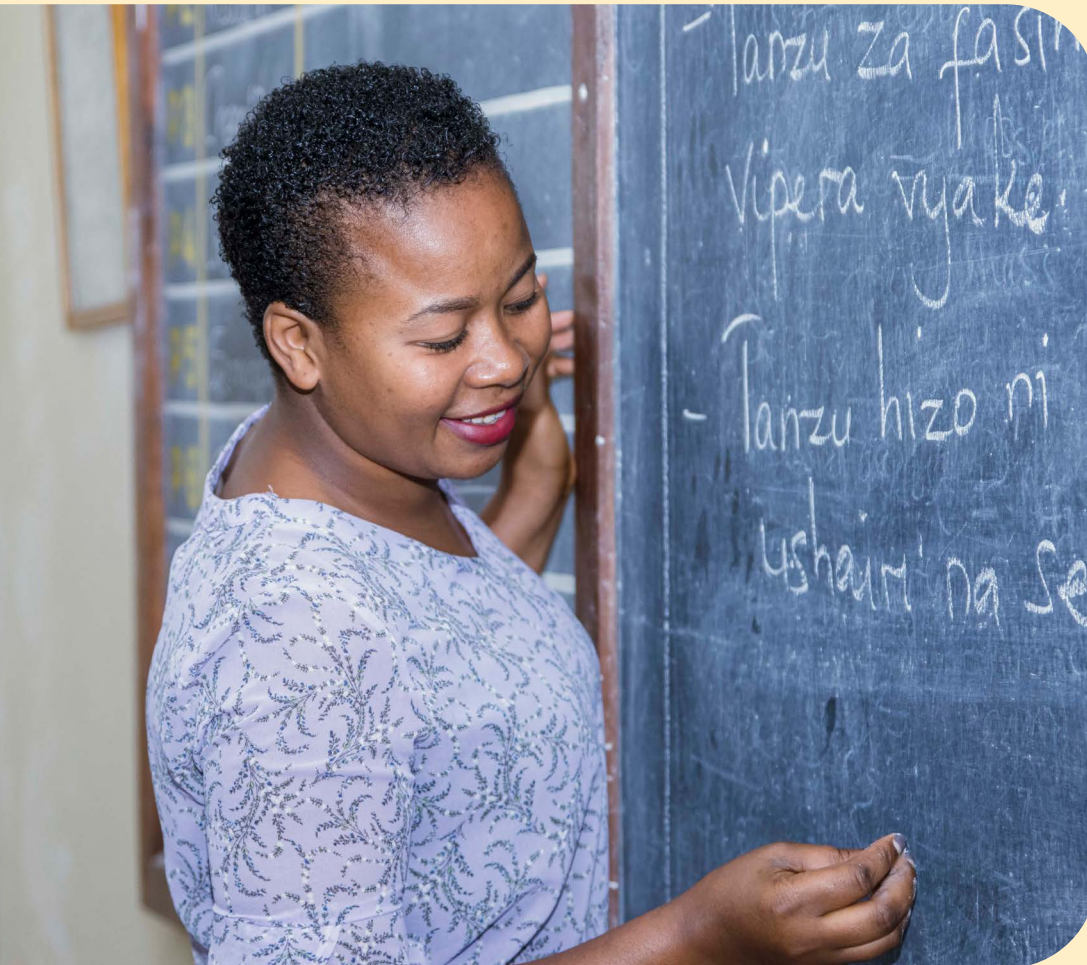 - Tanzu za fasih
Vipera vyake.
- Tanzu hizo ni
ushairi na se